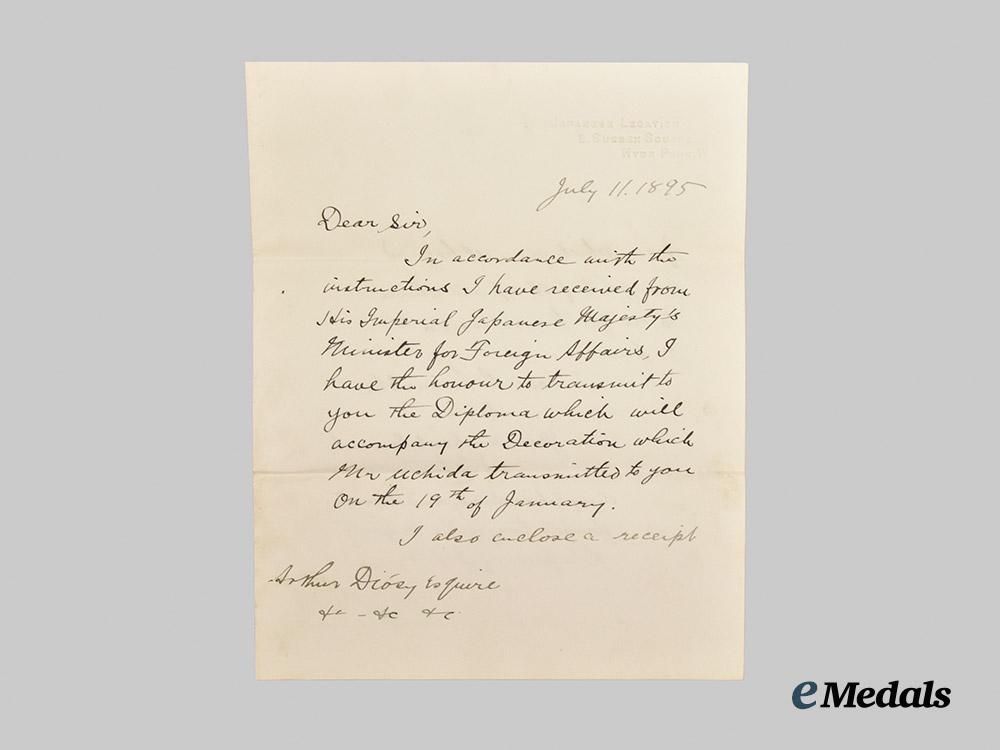 Japanese Legation
Sussex Square
Hyde Park, W
July 11. 1895
Dear Sir,
In accordance with the
instructions I have received from
His Imperial Japanese Majesty's
Minister for Foreign Affairs, I
have the honour to transmit to
you the Diploma which will
accompany the Decoration which
Mr Uchida transmitted to you
On the 19th of January.
I also enclose a receipt
Arthur Diósy Esquire
&c - &c &c
eMedals